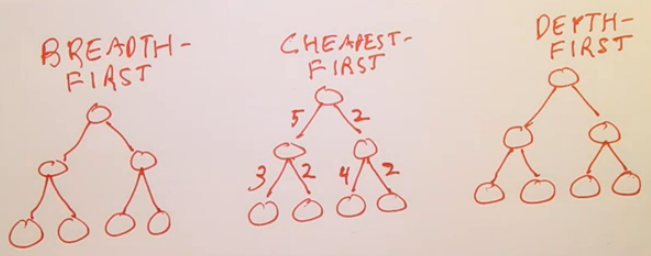 BREADTH-
FIRST
CHEAPEST-
FIRST
5 2
3 2 4 2
DEPTH-
FIRST